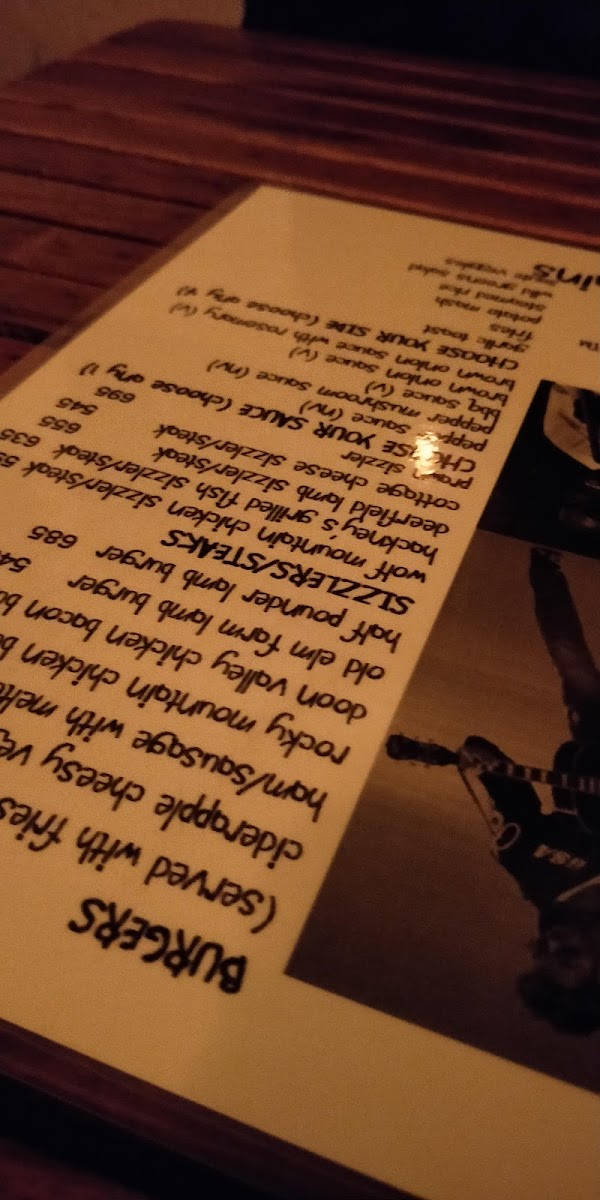 BURGERS
(served with fries
ciderapple cheesy
ham/sausage with
rocky mountain chicken
doon valley chicken bacon
old elm farm lamb burger
half pounder lamb burger 685
SIZZLERS/STEAKS
wolf mountain chicken sizzler/steak
hackney's grilled fish sizzler/steak 635
deerfield lamb sizzler/steak 655
cottage cheese sizzler/steak 545
sizzler 695
YOUR SAUCE (choose any 1)
pepper sauce (nv)
pepper mushroom sauce (nv)
bbq sauce (v)
brown onion sauce (v)
brown onion sauce with rosemary (v)
CHOOSE YOUR SIDE (choose any
garlic toast
fries
potato mash
steamed rice
wild greens salad
veggies
USA
TM